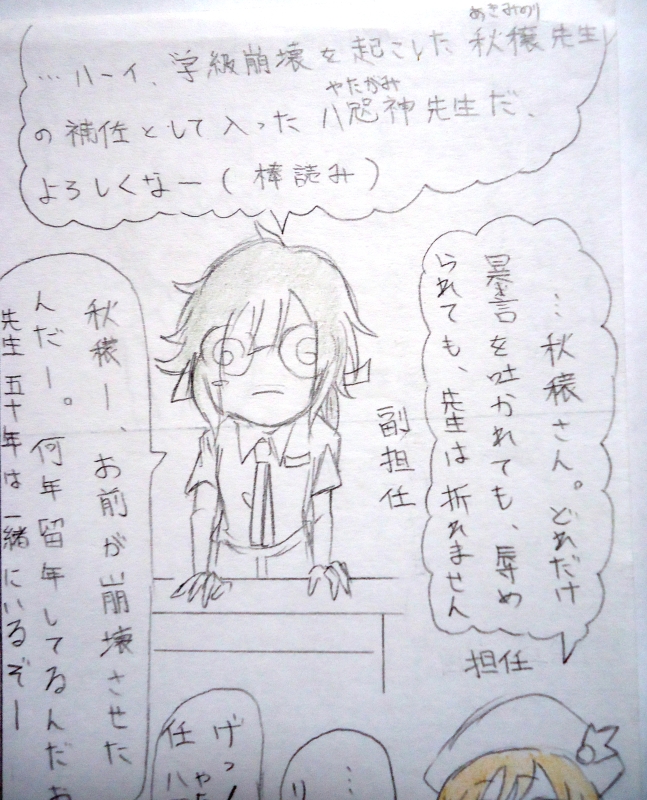 あきみのり
…ハーイ、学級崩壊を起こした秋穣先生
やたがみ
の補佐として入った八咫神先生だ、
よろしくなー(棒読み)
…秋穣さん。どれだけ
暴言を吐かれても、辱め
られても、先生は折れません
担任
副担任
秋穣ー、お前が崩壊させた
んだー。何年留年してるんだお
先生五十年は一緒にいるぞー
…
げっ
任